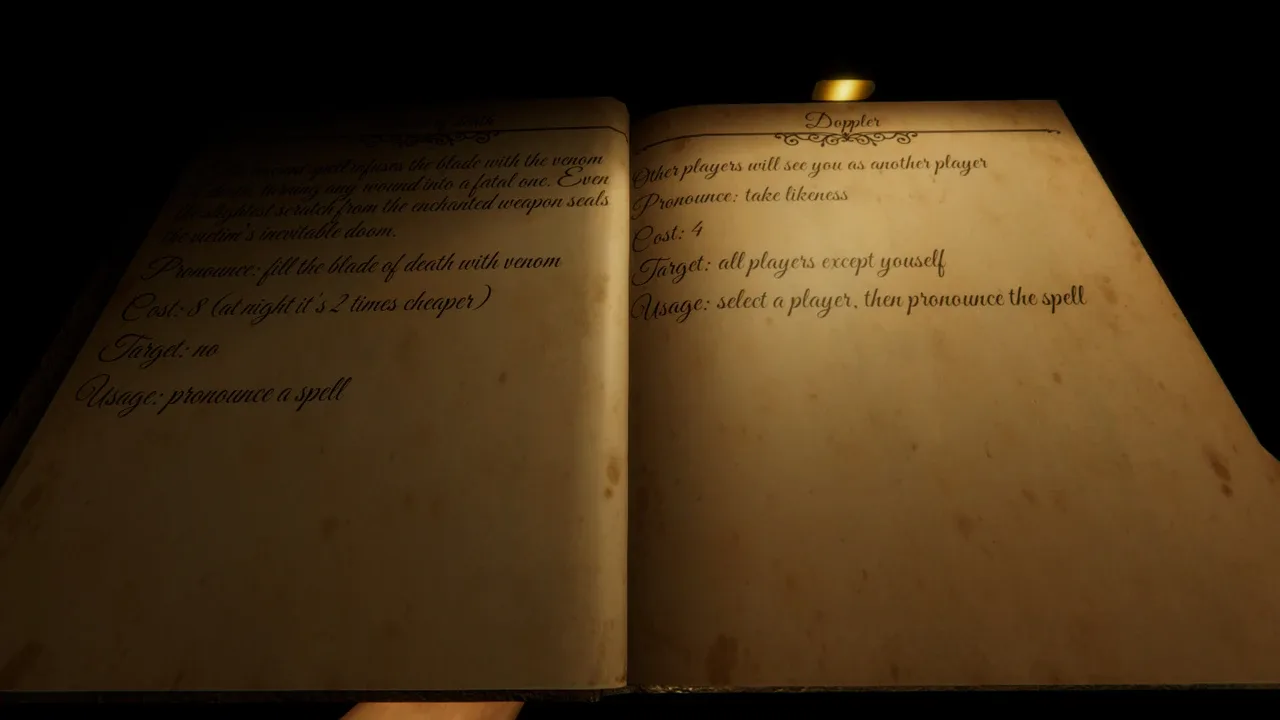 spell infuses the blade with the venom
of death, turning any wound into a fatal one. Even
the slightest scratch from the enchanted weapon seals
the victim's inevitable doom.
Pronounce: fill the blade of death with venom
Cost: 8 (at night it's 2 times cheaper)
Target: no
Usage: pronounce a spell
Doppler
Other players will see you as another player
Pronounce: take likeness
Cost: 4
Target: all players except youself
Usage: select a player, then pronounce the spell